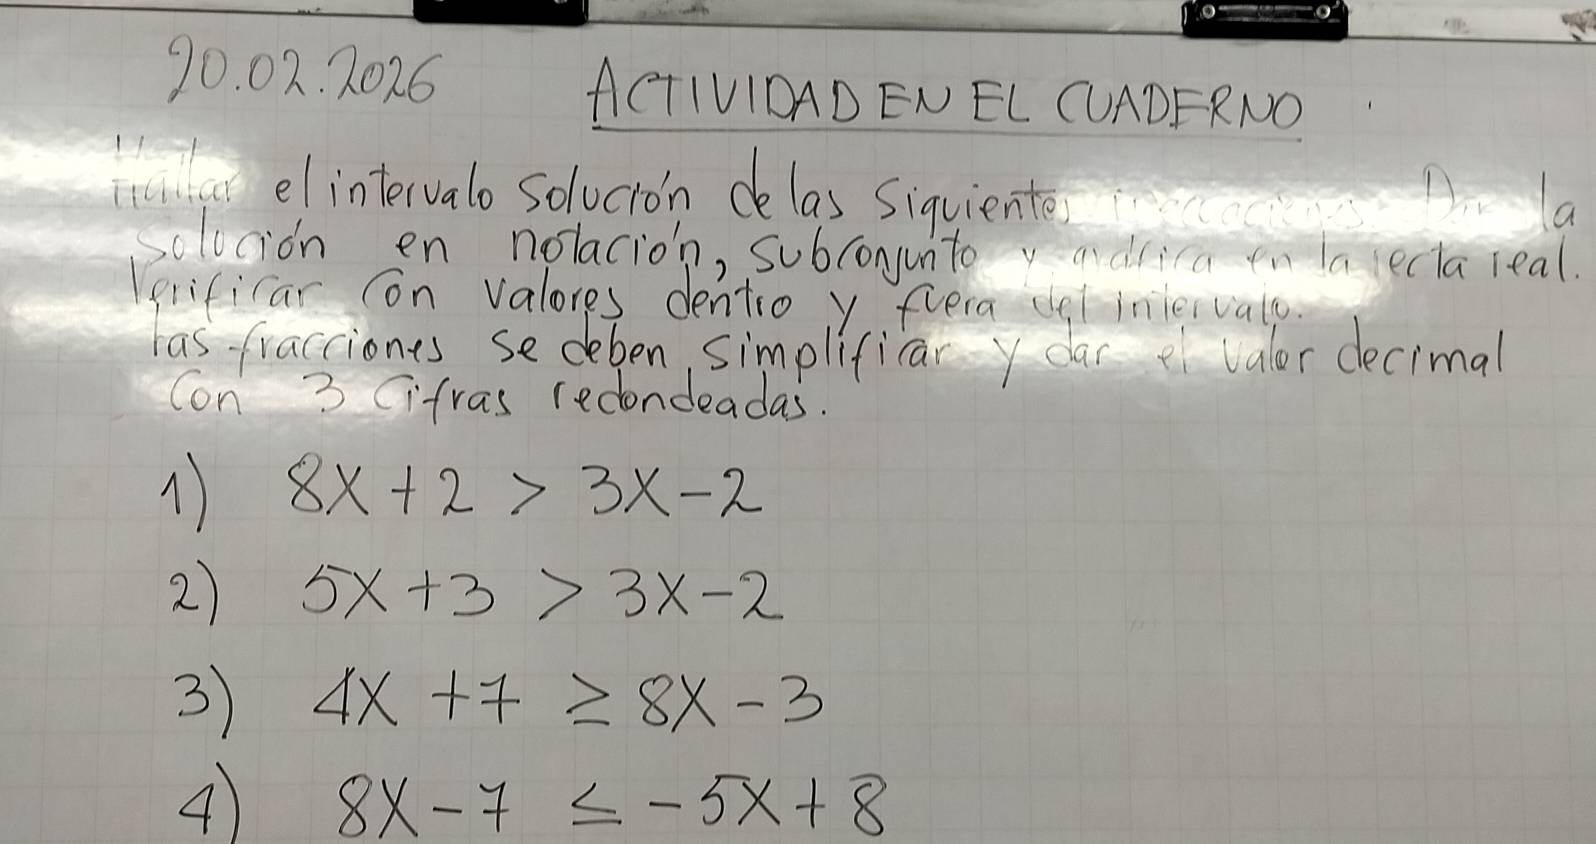 20.02.2026 ACTIVIDAD EN EL CUADERNO
Hallar el intervalo solución de las siguientes inecuaciones. Dar la
solución en notación, subconjunto y gráfica en la recta real.
Verificar con valores dentro y fuera del intervalo.
Las fracciones se deben simplificar y dar el valor decimal
con 3 cifras redondeadas.
1) 8x + 2 > 3x - 2
2) 5x + 3 > 3x - 2
3) 4x + 7 ≥ 8x - 3
4) 8x - 7 ≤ - 5x + 8